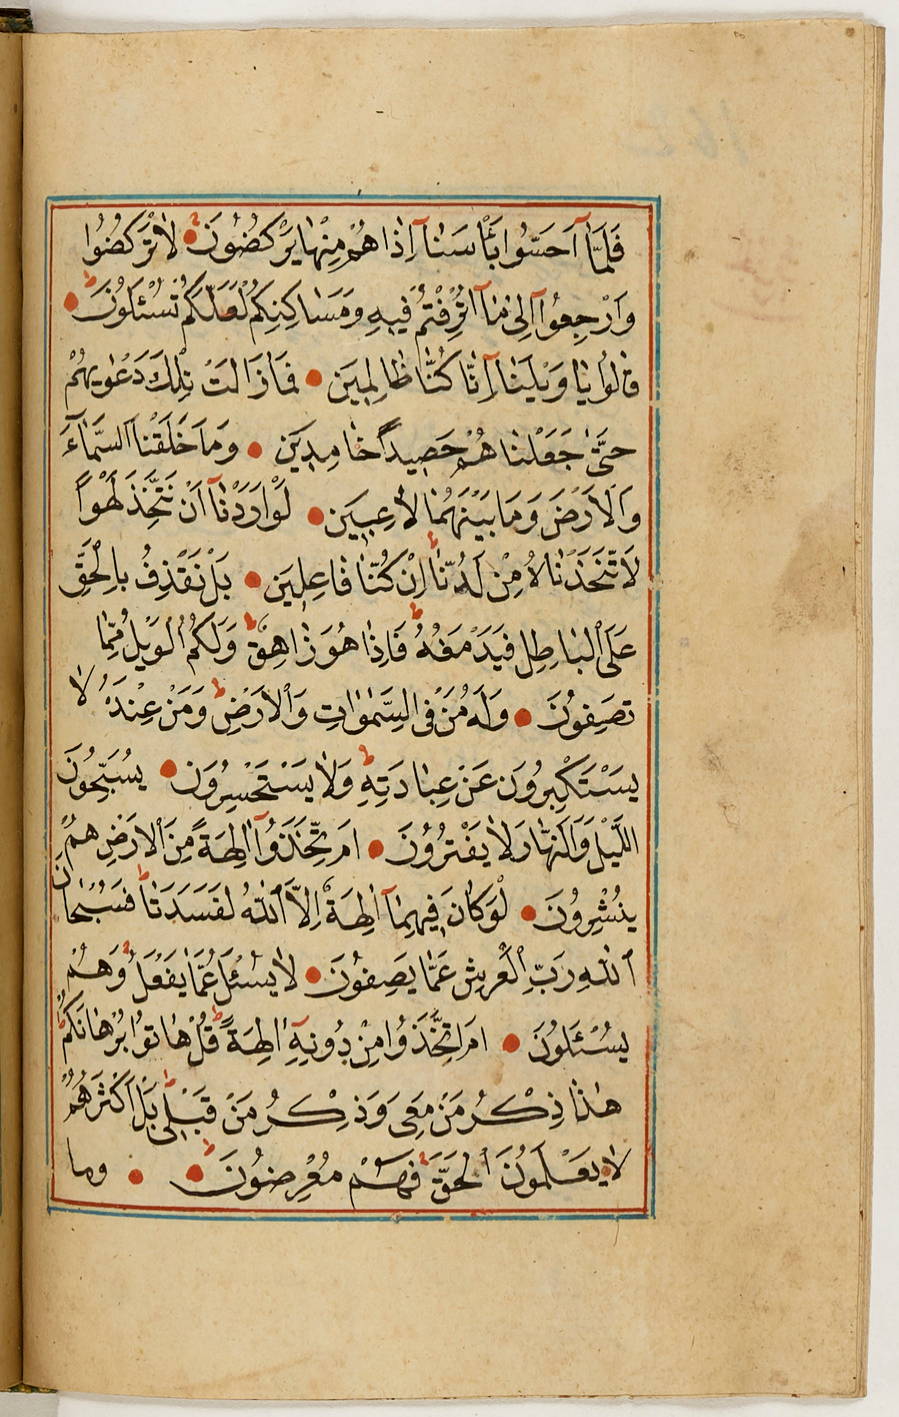 فَلَمَّٓا اَحَسُّوا بَأْسَنَٓا اِذَا هُمْ مِنْهَا يَرْكُضُونَ لَا تَرْكُضُوا
وَارْجِعُٓوا اِلٰى مَٓا اُتْرِفْتُمْ فٖيهِ وَمَسَاكِنِكُمْ لَعَلَّكُمْ تُسْئَلُونَ
قَالُوا يَا وَيْلَنَٓا اِنَّا كُنَّا ظَالِمٖينَ فَمَا زَالَتْ تِلْكَ دَعْوٰيهُمْ
حَتّٰى جَعَلْنَاهُمْ حَصٖيداً خَامِدٖينَ وَمَا خَلَقْنَا السَّمَٓاءَ
وَالْاَرْضَ وَمَا بَيْنَهُمَا لَاعِبٖينَ لَوْ اَرَدْنَٓا اَنْ نَتَّخِذَ لَهْواً
لَاتَّخَذْنَاهُ مِنْ لَدُنَّٓا اِنْ كُنَّا فَاعِلٖينَ بَلْ نَقْذِفُ بِالْحَقِّ
عَلَى الْبَاطِلِ فَيَدْمَغُهُ فَاِذَا هُوَ زَاهِقٌ وَلَكُمُ الْوَيْلُ مِمَّا
تَصِفُونَ وَلَهُ مَنْ فِى السَّمٰوَاتِ وَالْاَرْضِ وَمَنْ عِنْدَهُ لَا
يَسْتَكْبِرُونَ عَنْ عِبَادَتِهٖ وَلَا يَسْتَحْسِرُونَ يُسَبِّحُونَ
اللَّيْلَ وَالنَّهَارَ لَا يَفْتُرُونَ اَمِ اتَّخَذُٓوا اٰلِهَةً مِنَ الْاَرْضِ هُمْ
يُنْشِرُونَ لَوْ كَانَ فٖيهِمَٓا اٰلِهَةٌ اِلَّا اللّٰهُ لَفَسَدَتَا فَسُبْحَانَ
اللّٰهِ رَبِّ الْعَرْشِ عَمَّا يَصِفُونَ لَا يُسْئَلُ عَمَّا يَفْعَلُ وَهُمْ
يُسْئَلُونَ اَمِ اتَّخَذُوا مِنْ دُونِهٖٓ اٰلِهَةً قُلْ هَاتُوا بُرْهَانَكُمْ
هٰذَا ذِكْرُ مَنْ مَعِىَ وَذِكْرُ مَنْ قَبْلٖى بَلْ اَكْثَرُهُمْ
لَا يَعْلَمُونَ الْحَقَّ فَهُمْ مُعْرِضُونَ وما